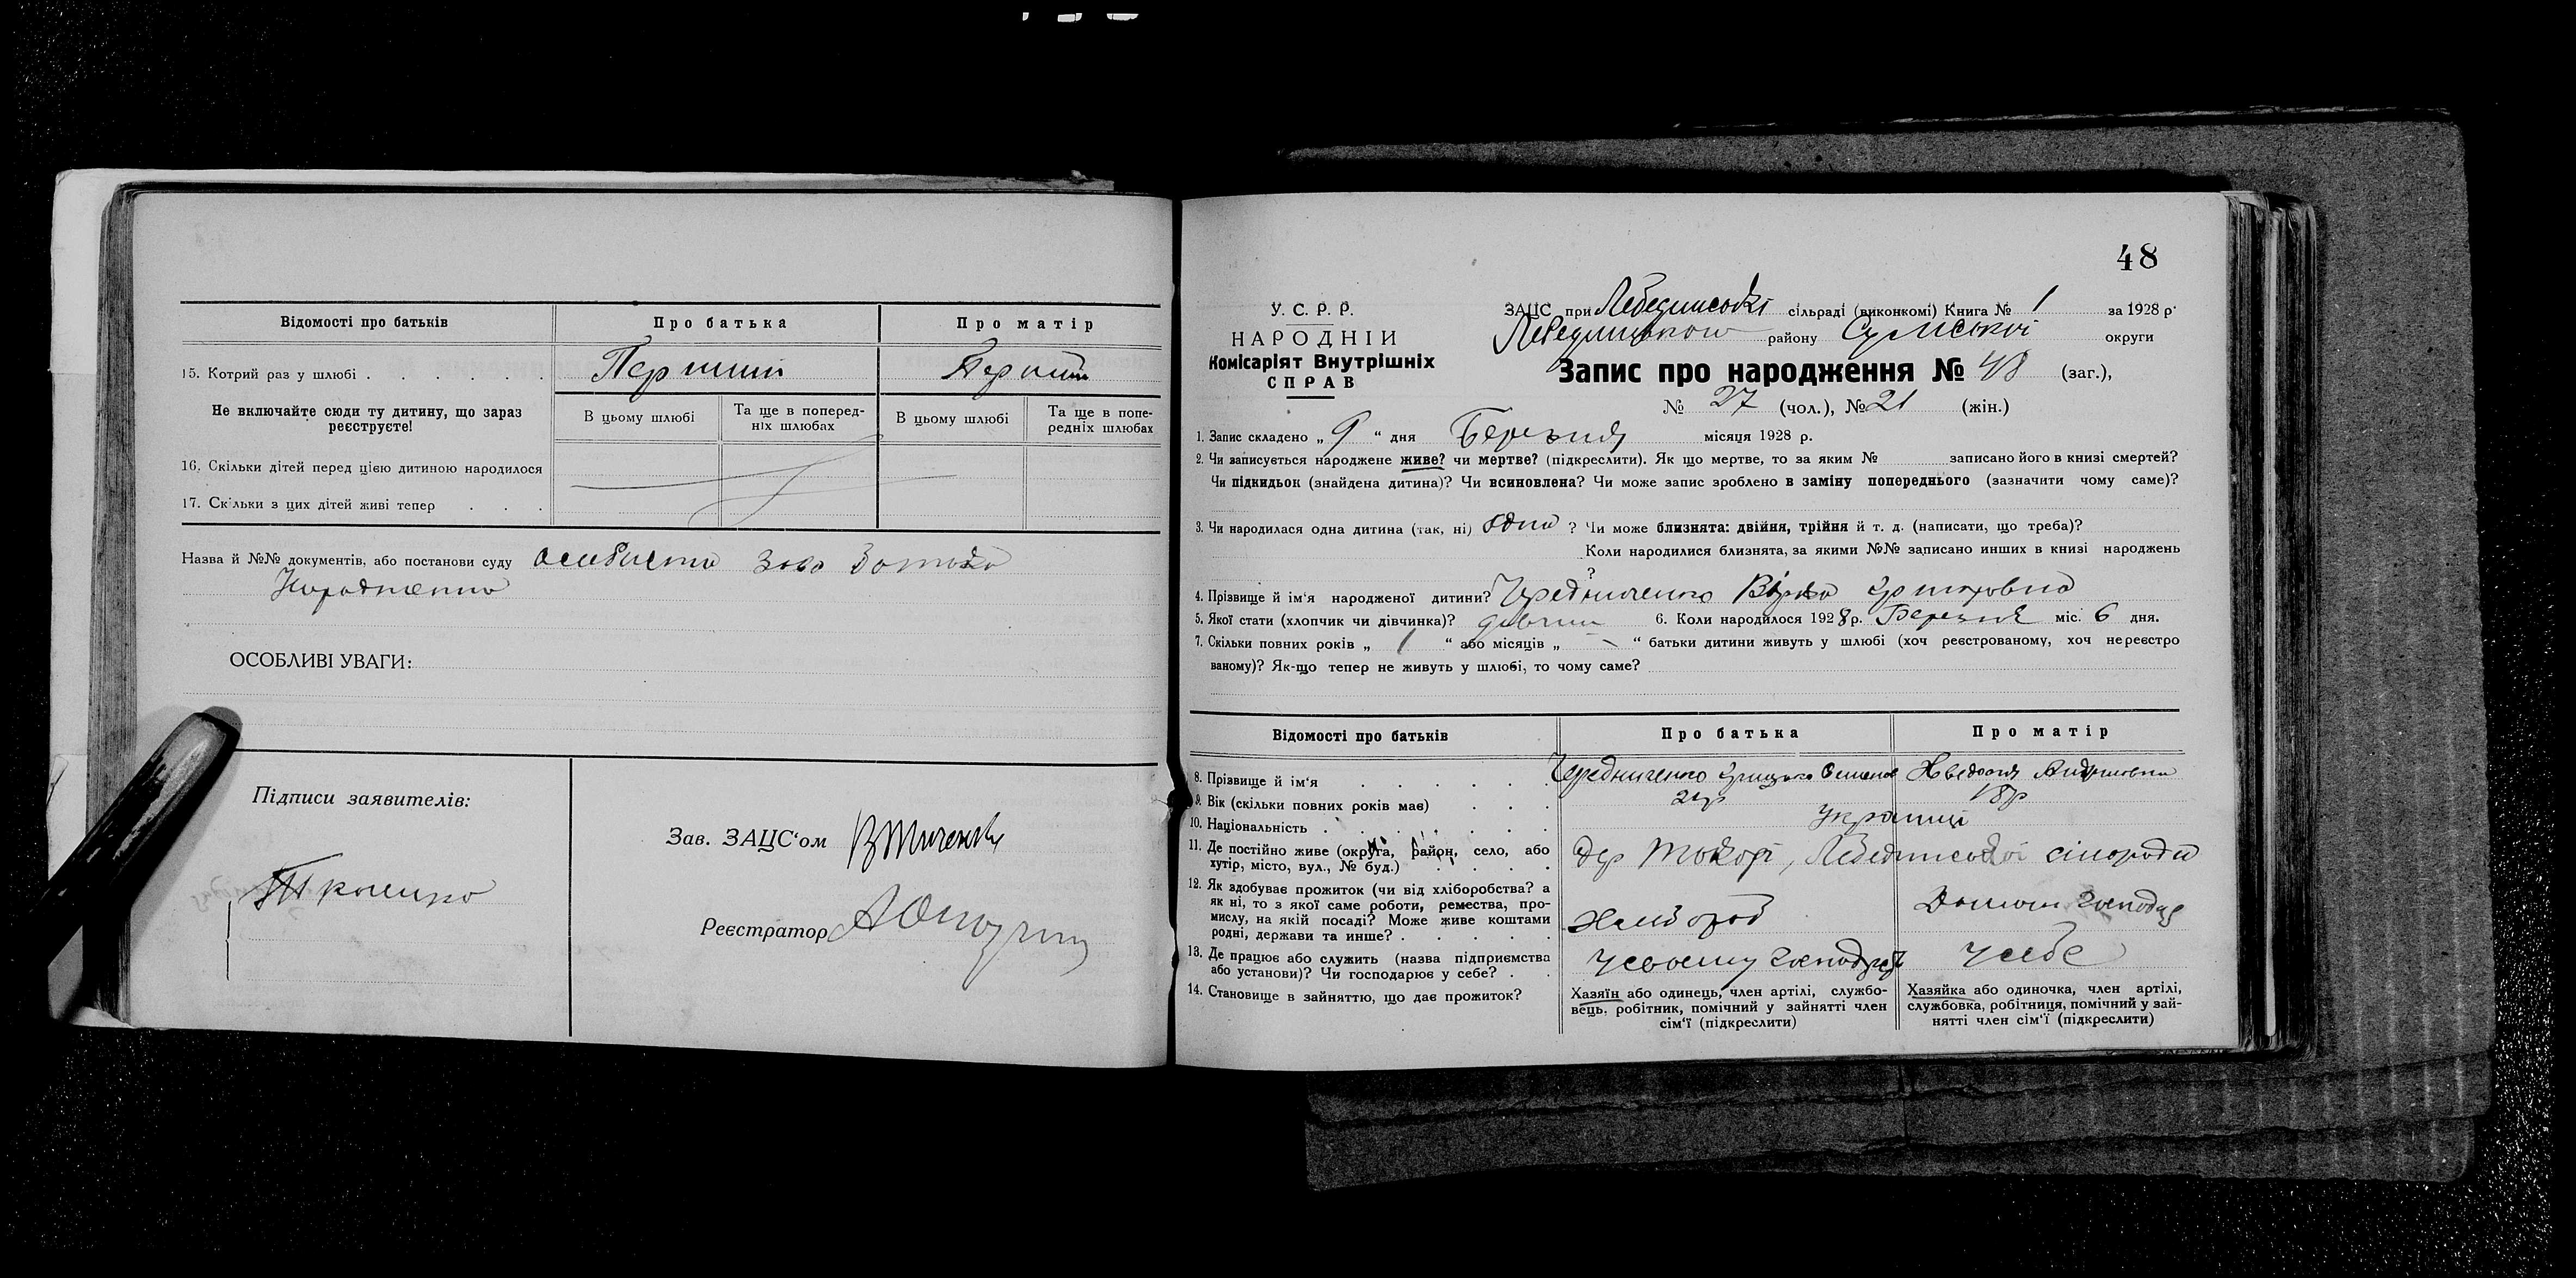 Відомості про батьків
Про батька
Про матір
15. Котрий раз у шлюбі . . . . . . Перший Перший
Не включайте сюди ту дитину, що зараз
реєструєте!
В цьому шлюбі
Та ще в поперед-
ніх шлюбах
В цьому шлюбі
Та ще в попе-
редніх шлюбах
16. Скільки дітей перед цією дитиною народилося
17. Скільки з цих дітей живі тепер . . .
Назва й №№ документів, або постанови суду особиста
ОСОБЛИВІ УВАГИ:
Підписи заявителів:
Зав. ЗАЦС‘ом
Реєстратор
48
У. С. Р. Р.
НАРОДНІЙ
Комісаріят Внутрішніх
СПРАВ
ЗАЦС при Лебединській сільраді (виконкомі) Книга № 1 за 1928 р.
Лебединського району Сумської округи
Запис про народження № 48 (заг.),
№ 27 (чол.), № 21 (жін.)
1. Запис складено „ 9 “ дня Березня місяця 1928 р.
2. Чи записується народжене живе? чи мертве? (підкреслити). Як що мертве, то за яким № записано його в книзі смертей?
Чи підкидьок (знайдена дитина)? Чи всиновлена? Чи може запис зроблено в заміну попереднього (зазначити чому саме)?
3. Чи народилася одна дитина (так, ні) одна ? Чи може близнята: двійня, трійня й т. д. (написати, що треба)?
Коли народилися близнята, за якими №№ записано инших в книзі народжень
?
4. Прізвище й ім‘я народженої дитини? Чередниченко Вірка
5. Якої стати (хлопчик чи дівчинка)? дівчин 6. Коли народилося 1928 р. Березня міс. 6 дня.
7. Скільки повних років „ 1 “ або місяців „ — “ батьки дитини живуть у шлюбі (хоч реєстрованому, хоч нереєстро
ваному)? Як-що тепер не живуть у шлюбі, то чому саме?
Відомості про батьків
Про батька
Про матір
8. Прізвище й ім‘я . . . . . . Чередниченко Грицько Семенов Хведосія Андріювна
9. Вік (скільки повних років має) . . . 21р 18р
10. Національність . . . . . . . Українці
11. Де постійно живе (округа, район, село, або
хутір, місто, вул., № буд.) . . . . Токарі, Лебединської сільради
12. Як здобуває прожиток (чи від хліборобства? а
як ні, то з якої саме роботи, ремества, про-
мислу, на якій посаді? Може живе коштами
родні, держави та инше? . . . . . Хлібороб
13. Де працює або служить (назва підприємства
або установи)? Чи господарює у себе? . . У своєму господарстві У себе
14. Становище в зайняттю, що дає прожиток?
Хазяїн або одинець, член артілі, службо-
вець, робітник, помічний у зайнятті член
сім‘ї (підкреслити)
Хазяйка або одиночка, член артілі,
службовка, робітниця, помічний у зай-
нятті член сім‘ї (підкреслити)